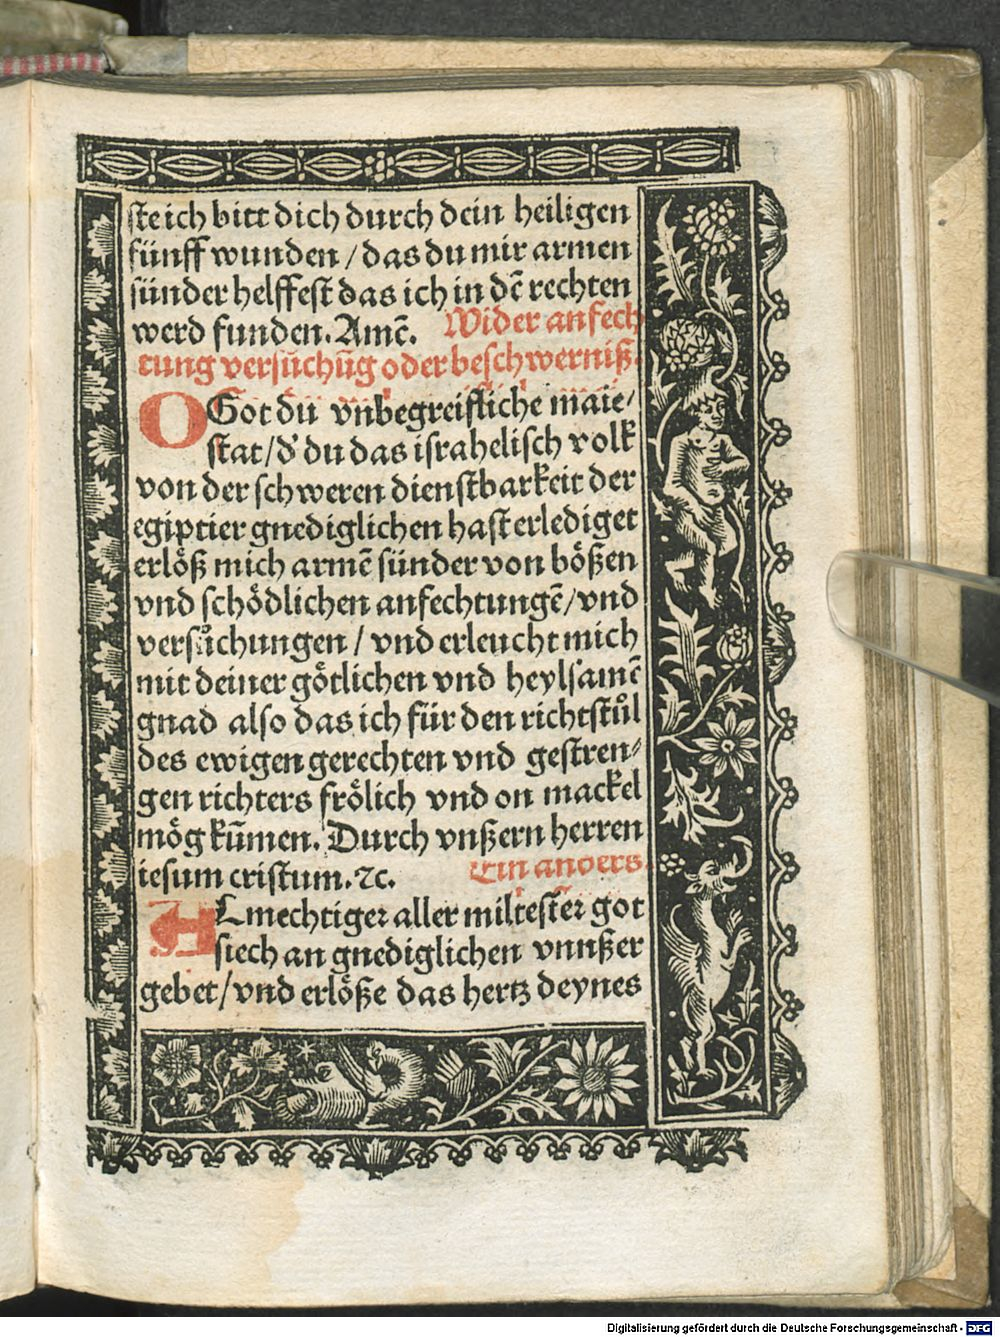 ste ich bitt dich durch dein heiligen
fünff wunden / das du mir armen
sünder helffest das ich in dē rechten
werd funden. Amē. Wider anfech
tung versůchūg oder beschwerniß.
O Got du vnbegreifliche maie/
stat / d' du das israhelisch volk
von der schweren dienstbarkeit der
egiptier gnediglichen hast erlediget
erlöß mich armē sünder von bößen
vnd schödlichen anfechtungē / vnd
versůchungen / vnd erleucht mich
mit deiner götlichen vnd heylsamē
gnad also das ich für den richtstůl
des ewigen gerechten vnd gestren⸗
gen richters frölich vnd on mackel
mög kūmen. Durch vnßern herren
iesum cristum. ⁊c. Ein anders.
ALmechtiger aller miltester got
siech an gnediglichen vnnßer
gebet / vnd erlöße das hertz deynes
Digitalisierung gefördert durch die Deutsche Forschungsgemeinschaft - DFG